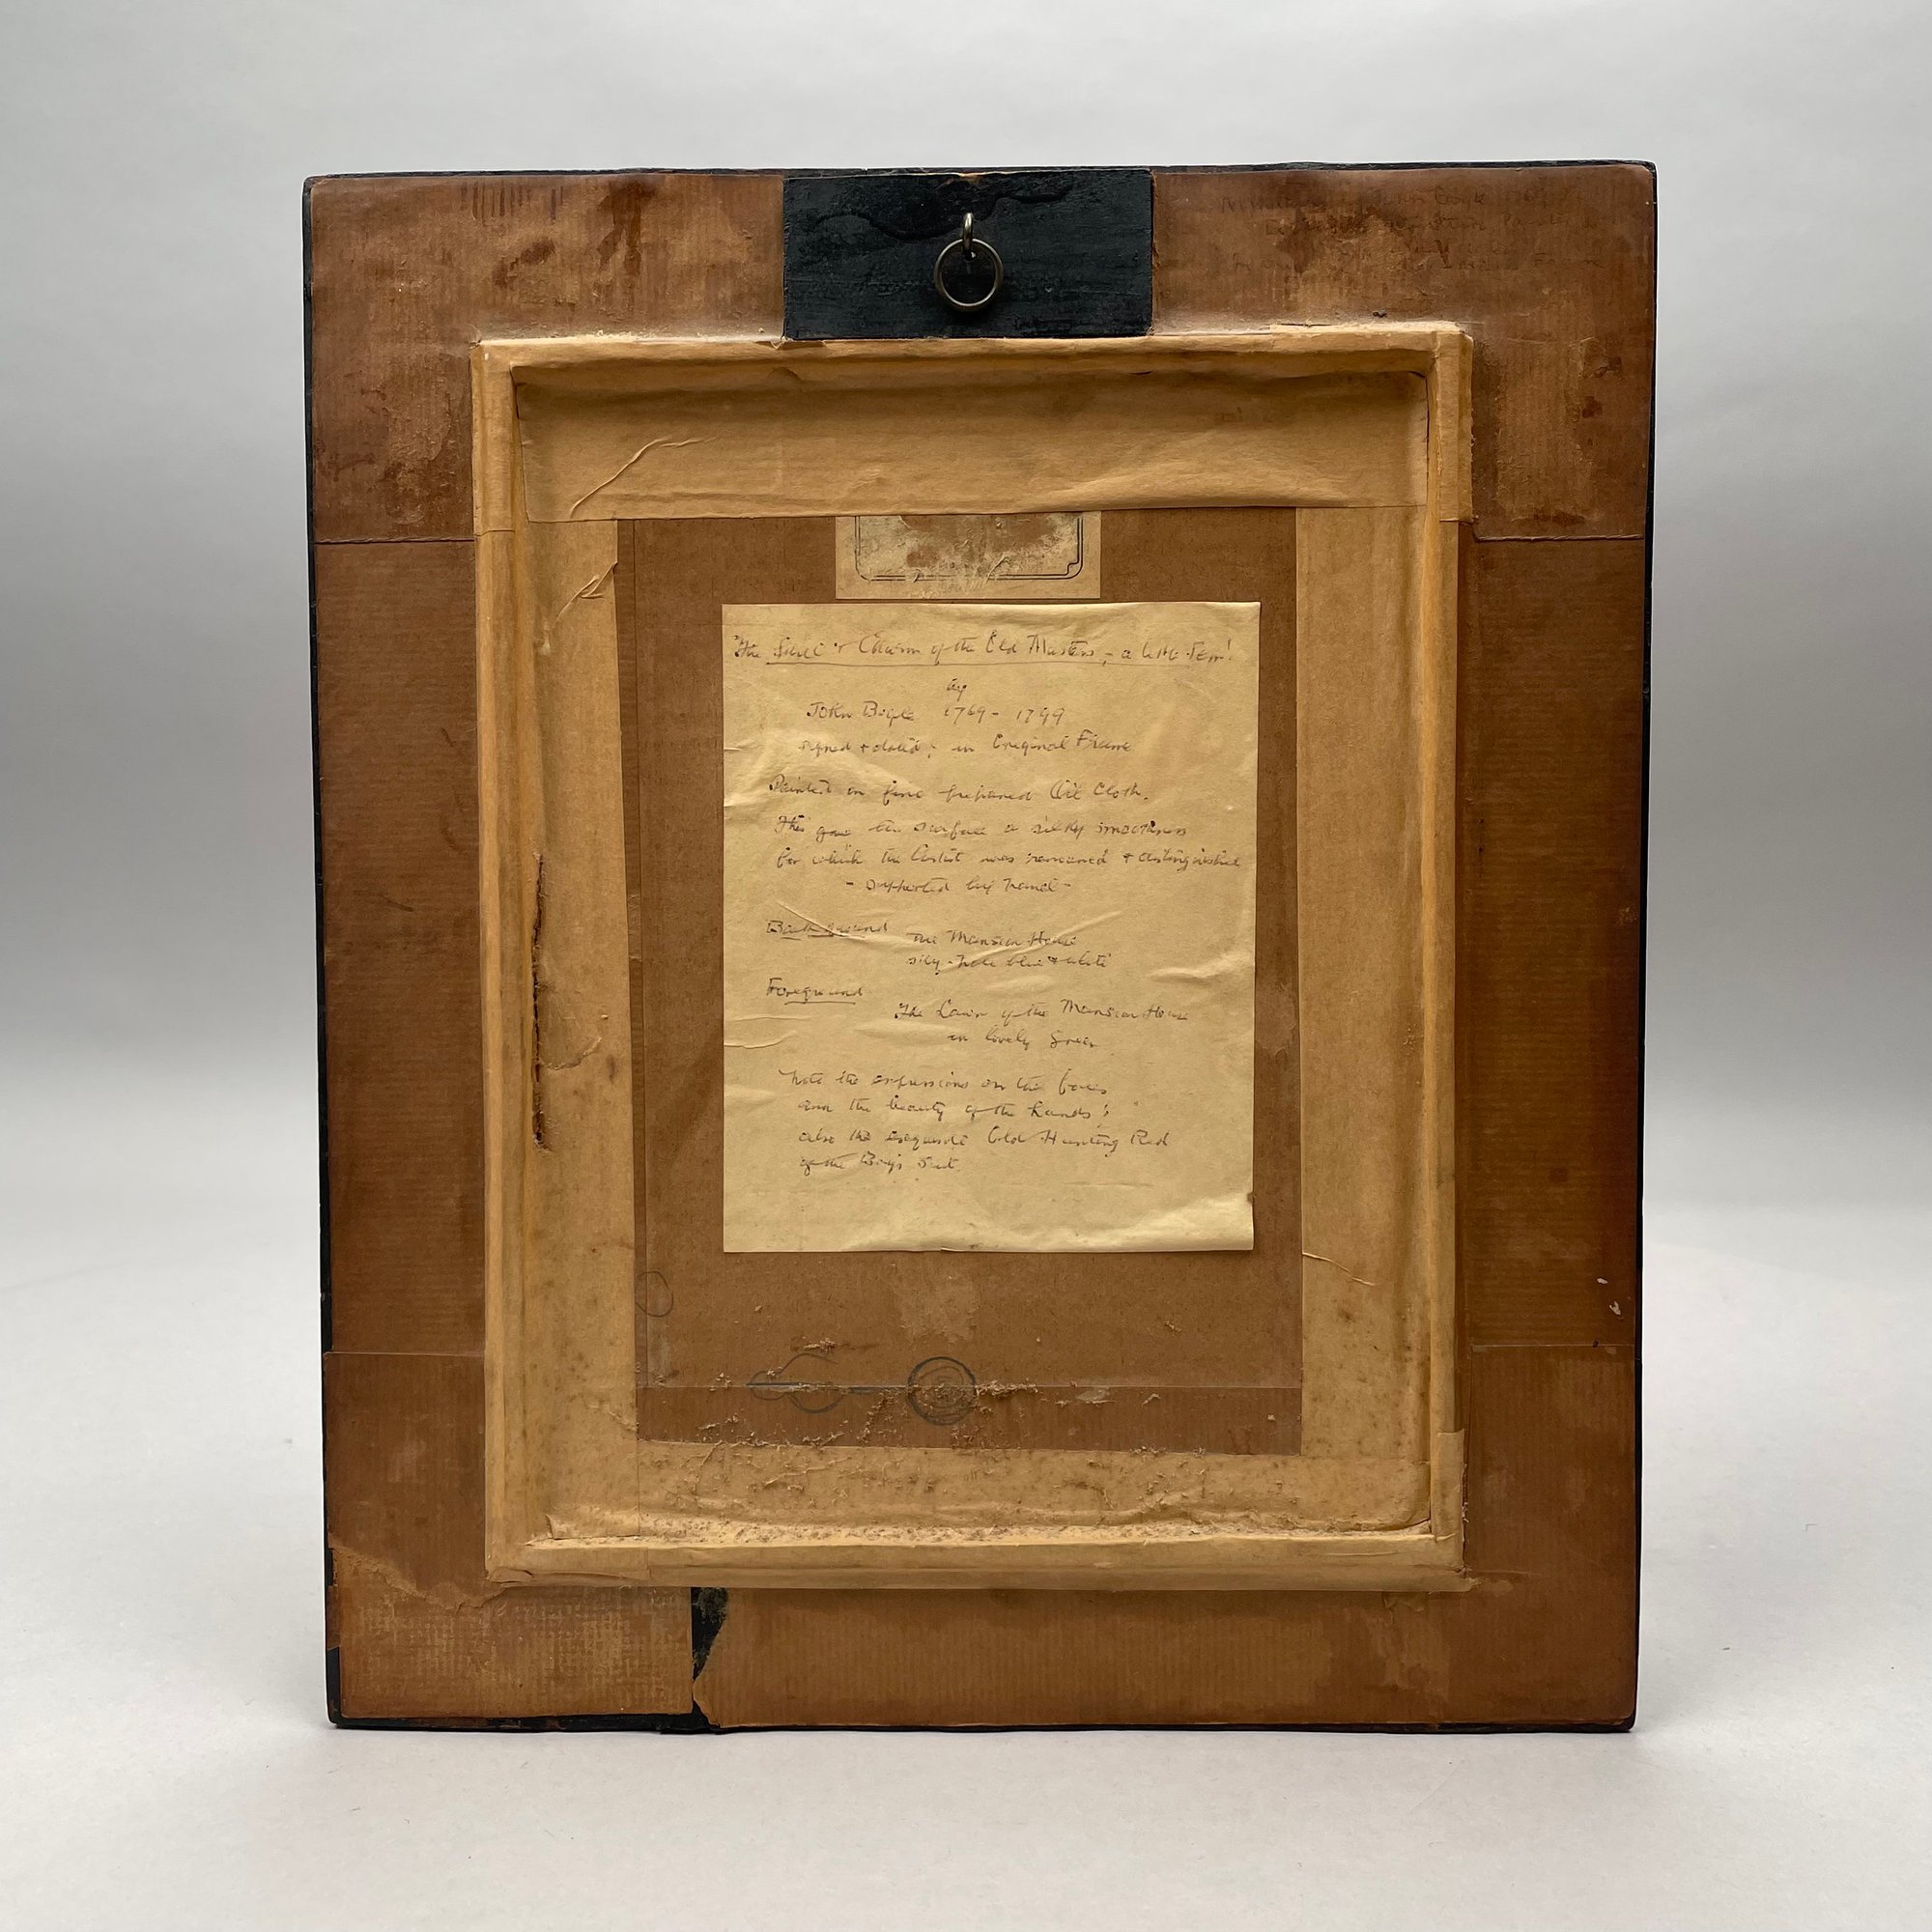 The Skill & Charm of the Old Masters, - a little Gem!
by
John Bogle 1769 - 1799
signed & dated; in Original Frame
Painted on fine prepared Oil Cloth.
This gave the surface a silky smoothness
for which the Artist was renowned & distinguished
- supported by
Background The Mansion House
sky - pale blue & white
Foreground
The Lawn of the Mansion House
in lovely Green
Note the expressions on the faces
and the beauty of the hands;
also the exquisite Old Hunting Red
of the Boy's Suit.